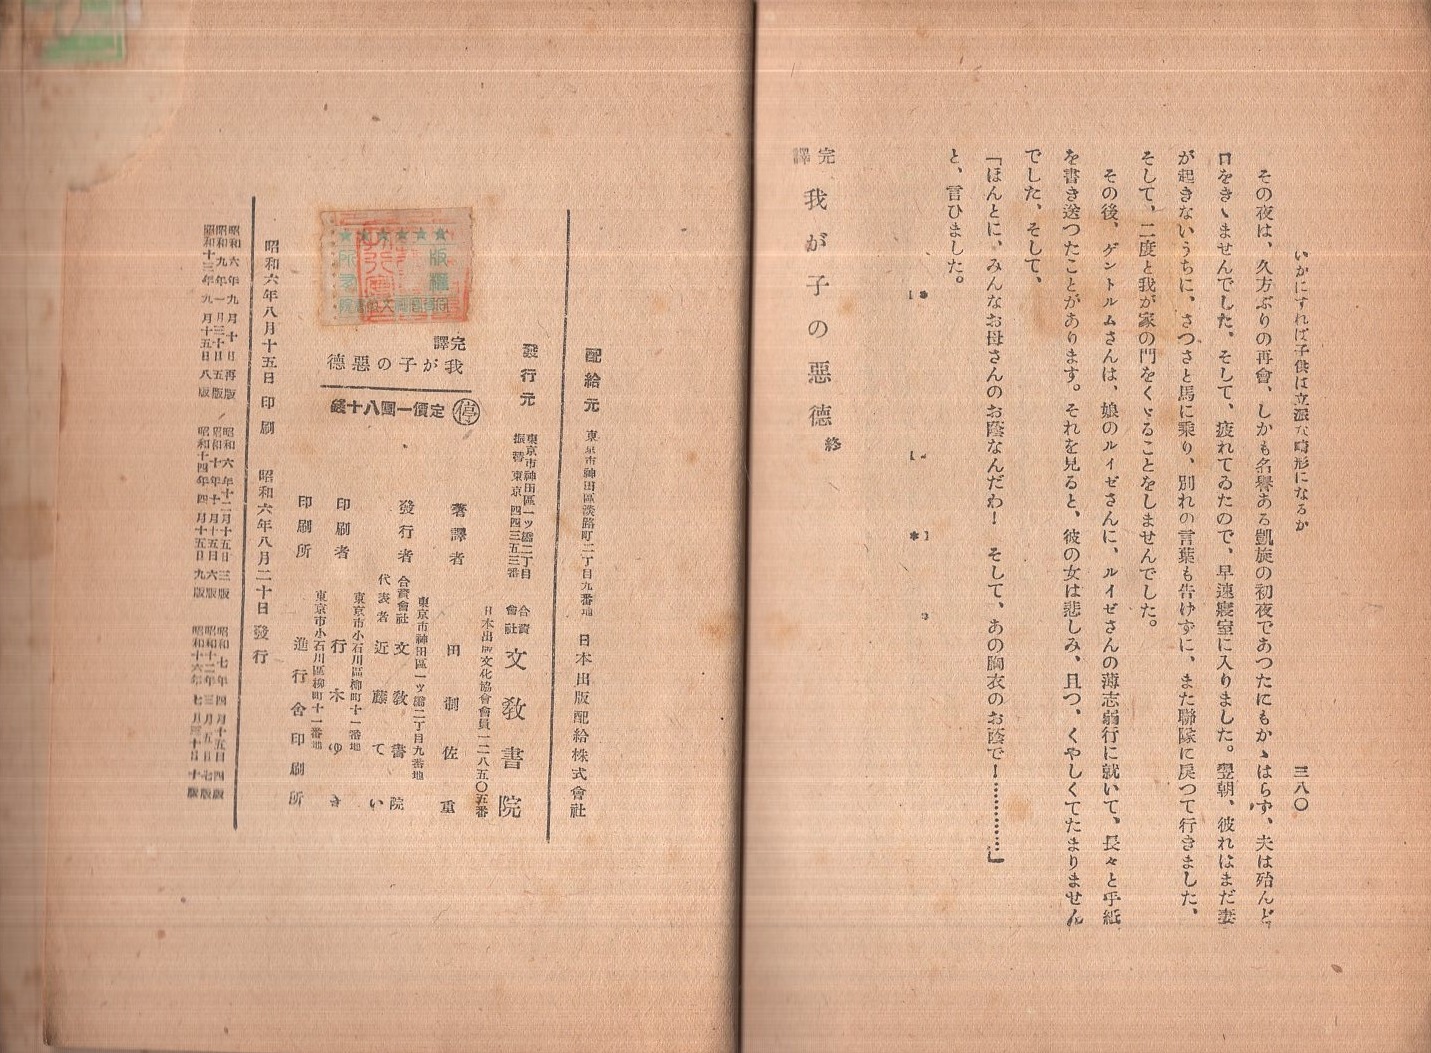 いかにすれば子供は立派な畸形になるか
三八〇
その夜は、久方ぶりの再會、しかも名譽ある凱旋の初夜であつたにもかゝはらず、夫は殆んど
口をきゝませんでした。そして、疲れてゐたので、早速寢室に入りました。翌朝、彼れはまだ妻
が起きないうちに、さつさと馬に乘り、別れの言葉も告げずに、また聯隊に戻つて行きました、
そして、二度と我が家の門をくゞることをしませんでした。
その後、ゲントルムさんは、娘のルイゼさんに、ルイゼさんの薄志弱行に就いて、長々と手紙
を書き送つたことがあります。それを見ると、彼の女は悲しみ、且つ、くやしくてたまりません
でした、そして、
「ほんとに、みんなお母さんのお蔭なんだわ！　そして、あの胸衣のお蔭で！…………」
と、言ひました。
完譯 我が子の惡德 終
配給元 東京市神田區淡路町二丁目九番地 日本出版配給株式會社
發行元 東京市神田區一ツ橋二丁目 振替東京四四三五三番 合資會社 文敎書院
日本出版文化協會會員一二八五〇五番
完譯
我が子の惡德
停 定價一圓八十錢
著譯者 田制佐重
東京市神田區一ツ橋二丁目九番地
發行者 合資會社 文敎書院
代表者 近藤てい
東京市小石川區柳町十一番地
印刷者 行木ゆき
東京市小石川區柳町十一番地
印刷所 進行舍印刷所
昭和六年八月十五日印刷 昭和六年八月二十日發行
昭和六年九月十日再版 昭和六年十二月十五日三版 昭和七年四月十五日四版
昭和九年一月三十日五版 昭和十年十月十五日六版 昭和十二年三月五日七版
昭和十三年九月十五日八版 昭和十四年四月十五日九版 昭和十六年七月三十日十版